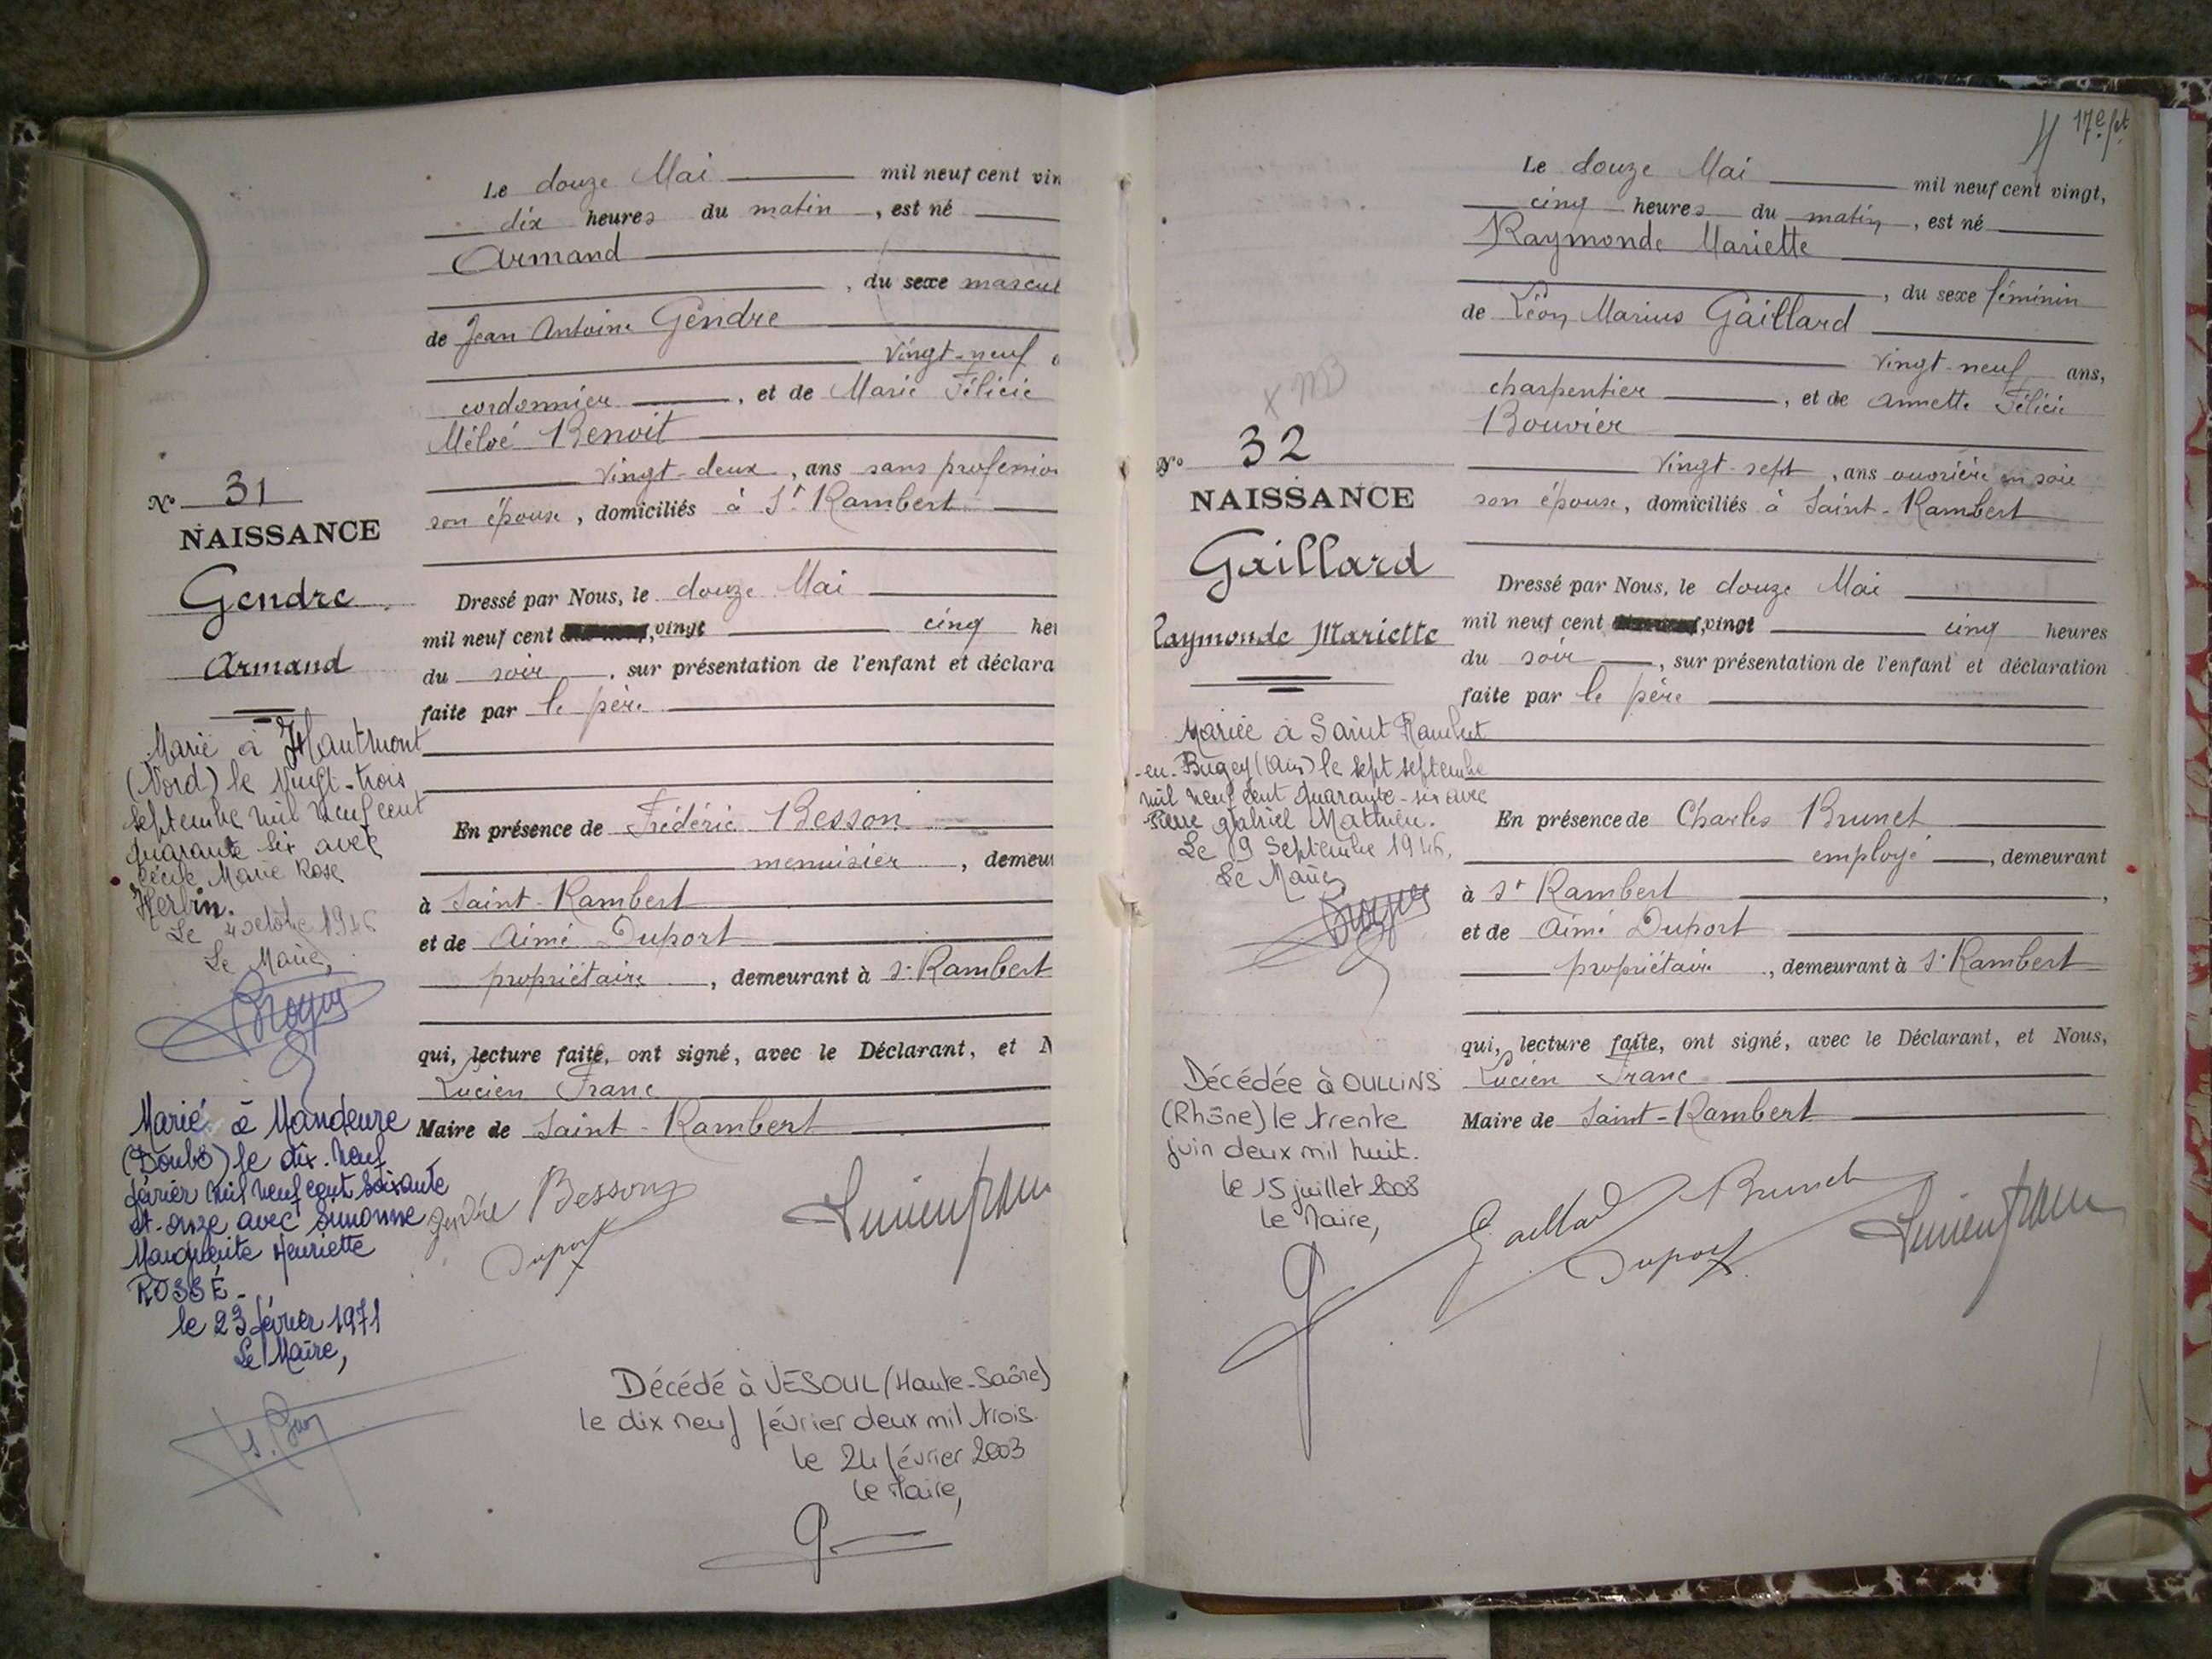 N° 31
NAISSANCE
Gendre
Armand
Marié à Hautmont
(Nord) le vingt-trois
septembre mil neuf cent
quarante six avec
Cécile Marie Rose
Herbin.
Le 4 octobre 1946
Le Maire,
Marié à Mandeure
(Doubs) le dix-neuf
février mil neuf cent soixante
et-onze avec Simonne
Marguerite Henriette
ROSSÉ-
le 23 février 1971
Le Maire,
Le douze Mai mil neuf cent vin
dix heures du matin, est né
Armand
, du sexe mascul
de Jean Antoine Gendre
vingt-neuf
cordonnier, et de Marie Félicie
Méloé Benoit
vingt-deux, ans sans profession
son épouse, domiciliés à St Rambert
Dressé par Nous, le douze Mai
mil neuf cent vingt cinq heu
du soir, sur présentation de l'enfant et déclara
faite par le père
En présence de Frédéric Besson
menuisier, demeur
à Saint-Rambert
et de Aimé Duport
propriétaire, demeurant à St Rambert
qui, lecture faite, ont signé, avec le Déclarant, et N
Lucien Franc
Maire de Saint-Rambert
Gendre Besson
Duport
Lucien Franc
Décédé à VESOUL (Haute-Saône)
le dix neuf février deux mil trois.
le 24 février 2003
le Maire,
17e ft
N° 32
NAISSANCE
Gaillard
Raymonde Mariette
Mariée à Saint Rambert
-en-Bugey (Ain) le sept septembre
mil neuf cent quarante-six avec
Pierre Gabriel Mathieu.
Le 9 Septembre 1946.
Le Maire,
Décédée à OULLINS
(Rhône) le trente
juin deux mil huit.
le 15 juillet 2008
le Maire,
Le douze Mai mil neuf cent vingt,
cinq heures du matin, est né
Raymonde Mariette
, du sexe féminin
de Léon Marius Gaillard
vingt-neuf ans,
charpentier, et de Annette Félicie
Bouvier
vingt-sept, ans ouvrière en soie
son épouse, domiciliés à Saint-Rambert
Dressé par Nous, le douze Mai
mil neuf cent vingt cinq heures
du soir, sur présentation de l'enfant et déclaration
faite par le père
En présence de Charles Brunet
employé, demeurant
à St Rambert,
et de Aimé Duport
propriétaire, demeurant à St Rambert
qui, lecture faite, ont signé, avec le Déclarant, et Nous,
Lucien Franc
Maire de Saint-Rambert
Gaillard Brunet
Duport
Lucien Franc